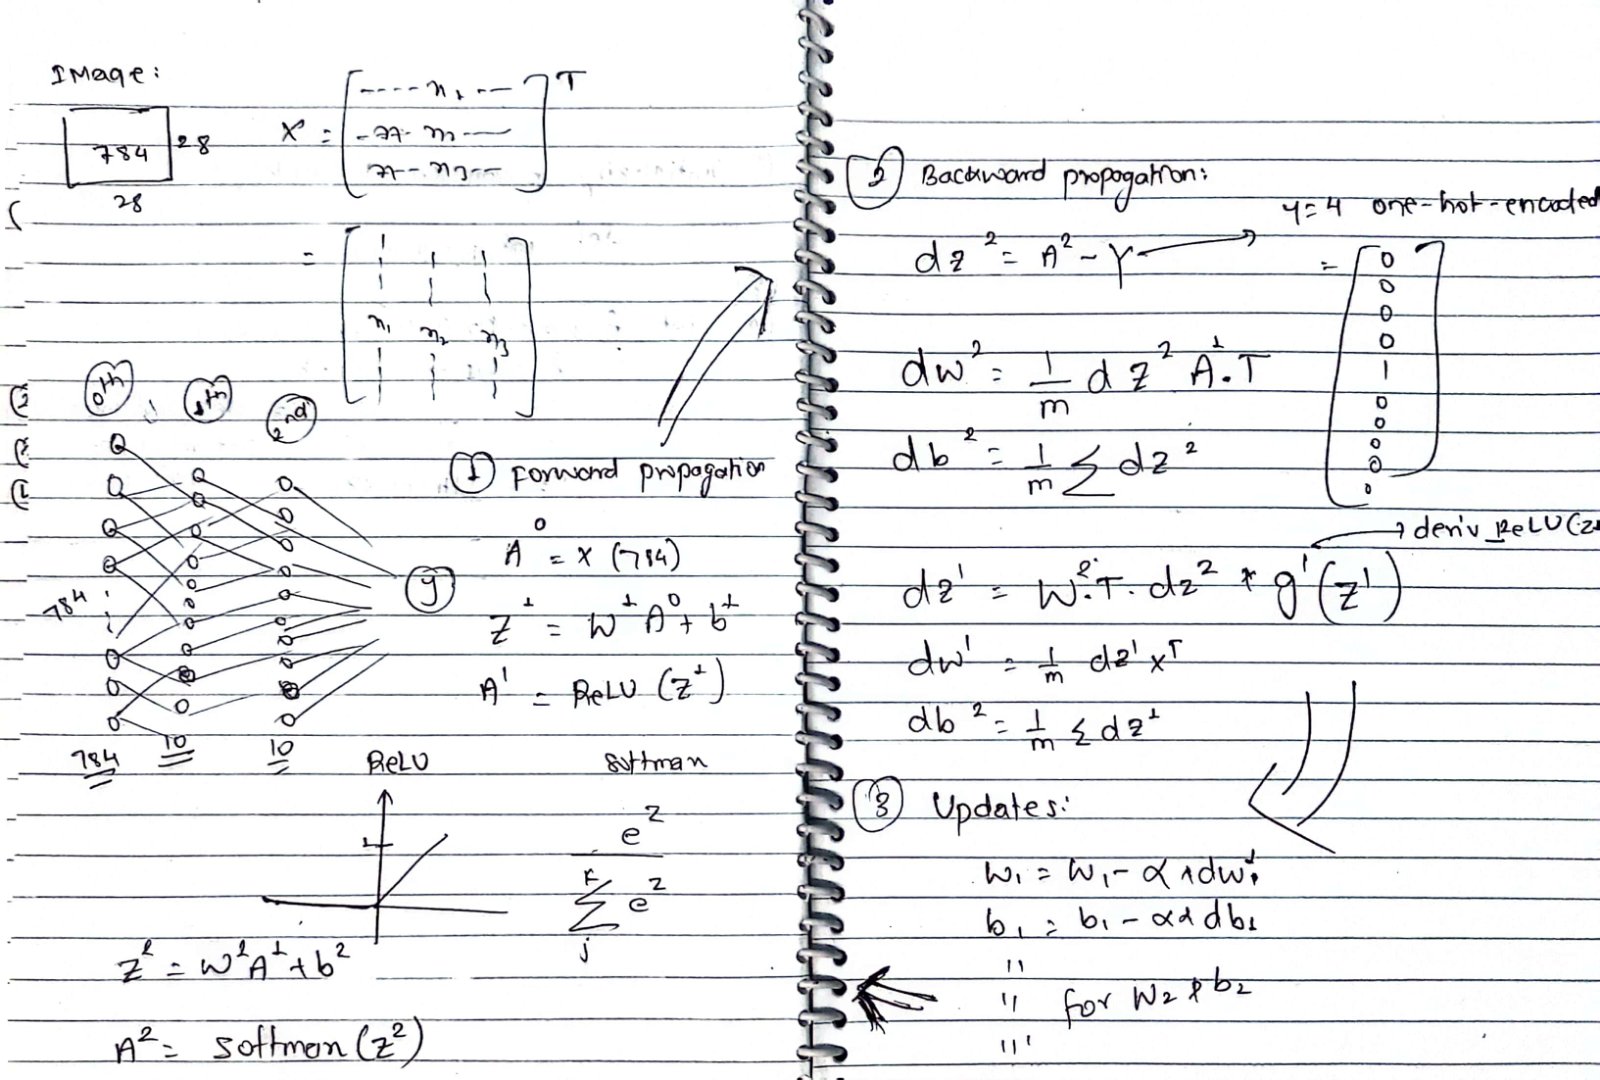 Image:
784
28
28
X = [ ---- x1 -- -- x2 --- -- x3 -- ]ᵀ
= [ x1 x2 x3 ]
0th 1th 2nd
784
y
784 10 10
① Forward propogation
A⁰ = X (784)
Z¹ = W¹ A⁰ + b¹
A¹ = ReLU (Z¹)
ReLU
1
Softmax
e^z
Σ^K_j e^z
Z² = W²A¹ + b²
A² = softmax (Z²)
② Backward propogation:
dz² = A² - Y → y=4 one-hot-encoded
= [ 0 0 0 0 1 0 0 0 0 0 ]
dw² = 1/m dz² A¹.T
db² = 1/m Σ dz²
→ deriv_ReLU(z1
dz' = W².T. dz² * g'(z')
dw' = 1/m dz' xᵀ
db² = 1/m Σ dz¹
③ Updates:
W₁ = W₁ - α * dw₁
b₁ = b₁ - α * db₁
"
" for W₂ & b₂
"'